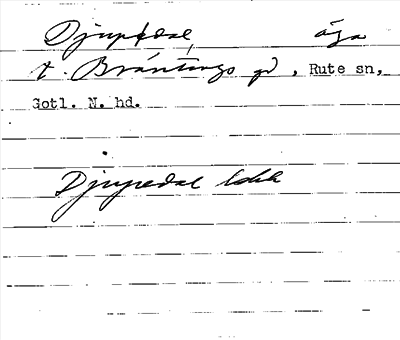 Djupedal, äga
t. Bräntings gd, Rute sn,
Gotl. N. hd.
Djupedal